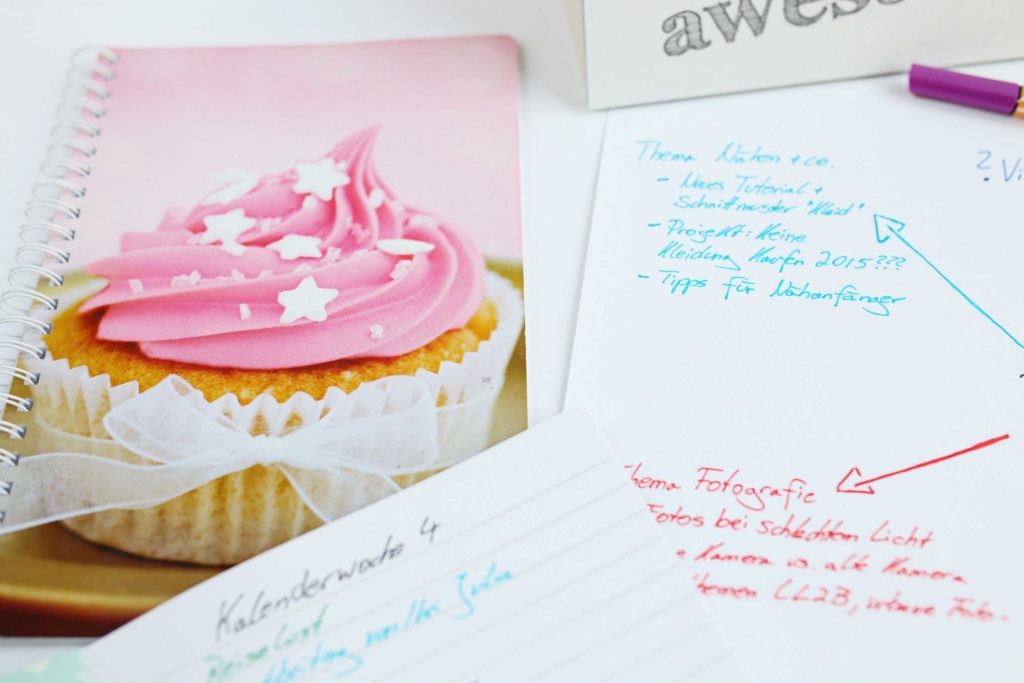 awes
Thema Nähen + co.
- Neues Tutorial +
Schnittmuster "Kleid"
- Projekt: Keine
Kleidung Kaufen 2015???
- Tipps für Nähanfänger
? Vi
hema Fotografie
Fotos bei schlechtem Licht
Kamera vs. alte Kamera
hemen LL2B, urbane Foto-
Kalenderwoche 4
Reiselust
beitung von/bei Julia